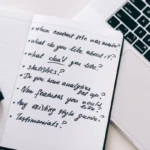 - When current site was created?
- What do you like about it?
- What don't you like?
- Statistics?
- Do you have analytics set up?
- New features you would like?
- Any existing style guide?
- Testimonials?